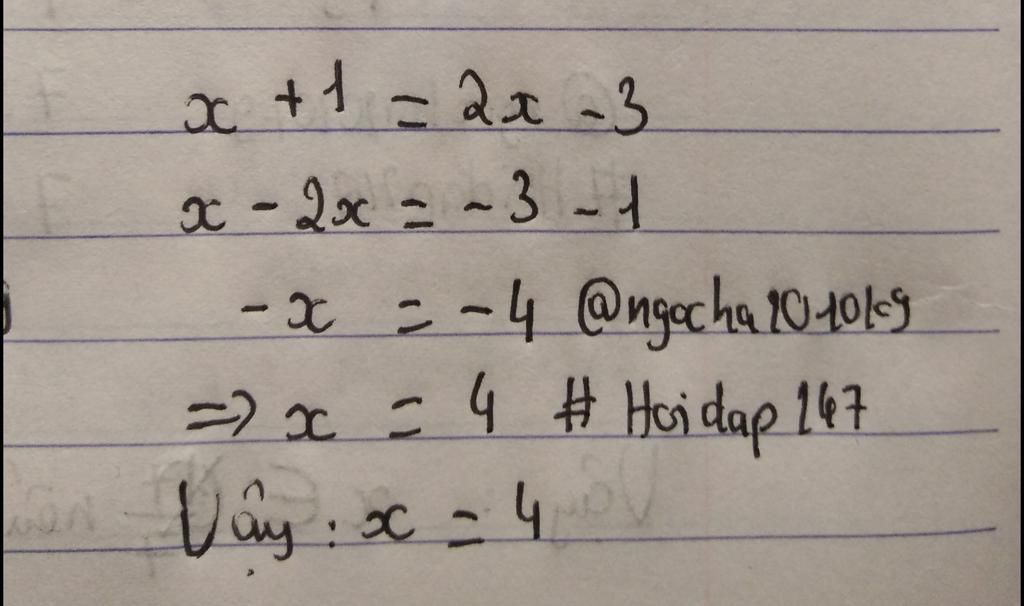 x + 1 = 2x - 3
x - 2x = - 3 - 1
- x = - 4 @ngocha1010kg
=> x = 4 # Hoidap247
Vậy : x = 4